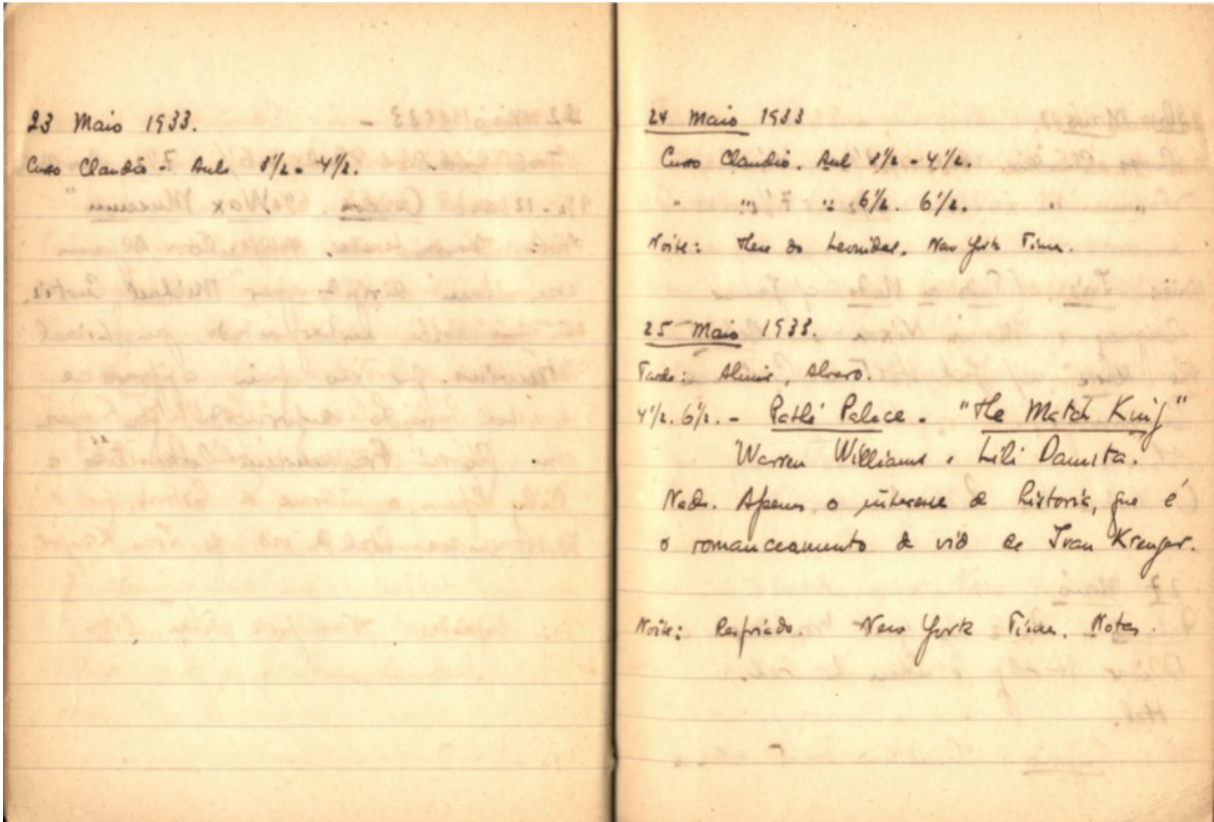 23 Maio 1933.
Curso Claudio - Aula 8½ - 4½.
24 Maio 1933
Curso Claudio. Aul 8½ - 4½.
" " " 6½. 6½.
Noite: do Leonidas. New York Times.
25 Maio 1933.
Tarde: Alvaro.
4½. 6½. - Pathé Palace - "The Match King"
Warren Williams. Lili Damita.
Nada. Apenas o interesse da historia, que é
o romanceamento da vida de Ivan Kreuger.
Noite: Resfriado. New York Times. Notas.